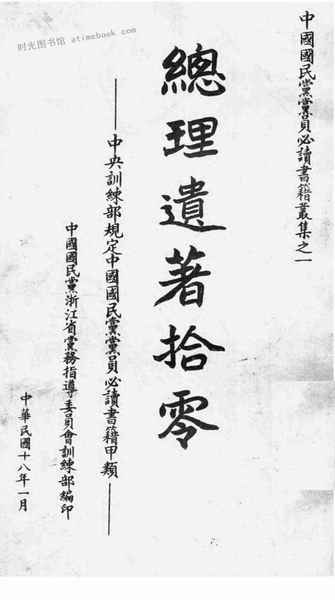 中國國民黨黨員必讀書籍叢集之一
總理遺著拾零
——中央訓練部規定中國國民黨黨員必讀書籍甲類——
中國國民黨浙江省黨務指導委員會訓練部編印
中華民國十八年一月
时光图书馆 atimebook.com